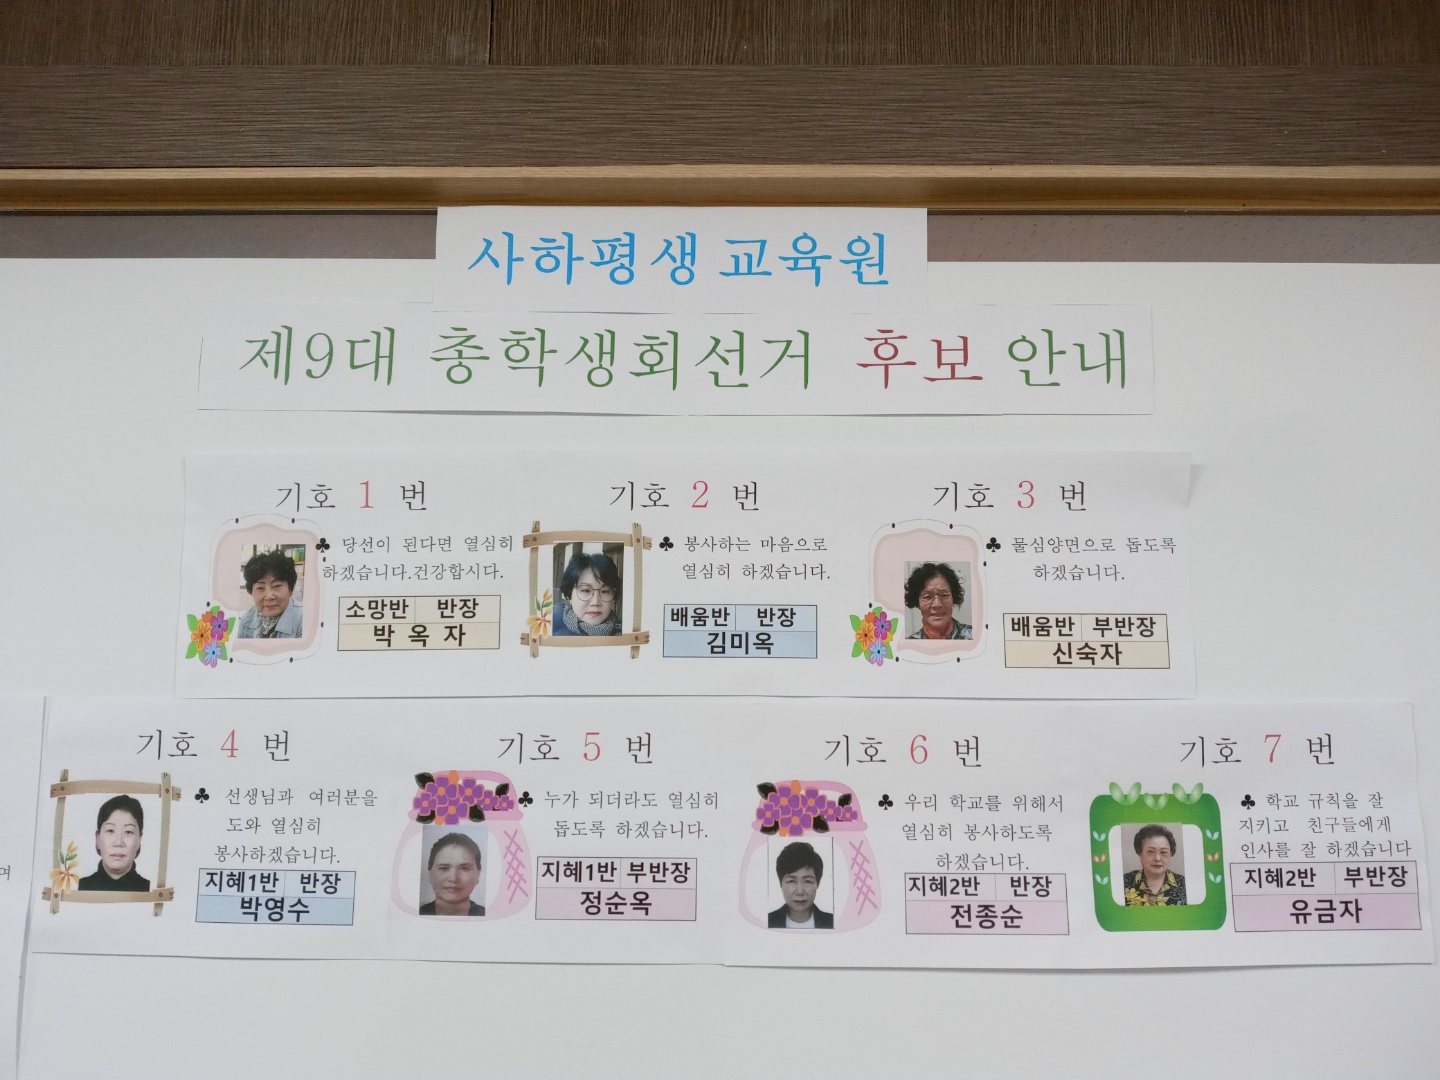 사하평생교육원
제9대 총학생회선거 후보 안내
기호 1 번
♣ 당선이 된다면 열심히
하겠습니다.건강합시다.
소망반 반장
박 옥 자
기호 2 번
♣ 봉사하는 마음으로
열심히 하겠습니다.
배움반 반장
김미옥
기호 3 번
♣ 물심양면으로 돕도록
하겠습니다.
배움반 부반장
신숙자
기호 4 번
♣ 선생님과 여러분을
도와 열심히
봉사하겠습니다.
지혜1반 반장
박영수
기호 5 번
♣ 누가 되더라도 열심히
돕도록 하겠습니다.
지혜1반 부반장
정순옥
기호 6 번
♣ 우리 학교를 위해서
열심히 봉사하도록
하겠습니다.
지혜2반 반장
전종순
기호 7 번
♣ 학교 규칙을 잘
지키고 친구들에게
인사를 잘 하겠습니다
지혜2반 부반장
유금자